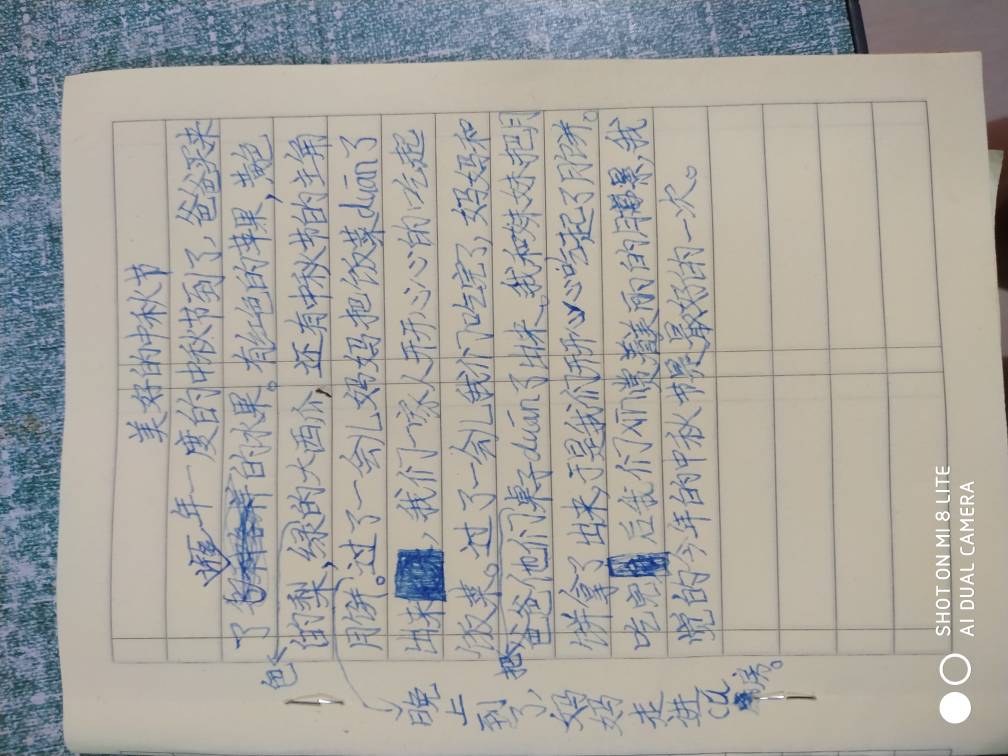 美好的中秋节
一年一度的中秋节到了，爸爸买来
了许多的水果。有红色的苹果，黄色
的梨，绿色的大西瓜，还有中秋节的主角
月饼。过了一会儿妈妈把饭菜duān了
出来，我们一家人开开心心的吃起
饭来。过了一会儿我们吃完了，妈妈和
爸爸他们把桌子duān了出来，我和妹妹把月
饼拿了出来，于是我们开心吃起了月饼。
吃完后我们欣赏着美丽的月景，我
觉的今年的中秋节是最好的一次。
晚上到了，妈妈走进
SHOT ON MI 8 LITE
AI DUAL CAMERA